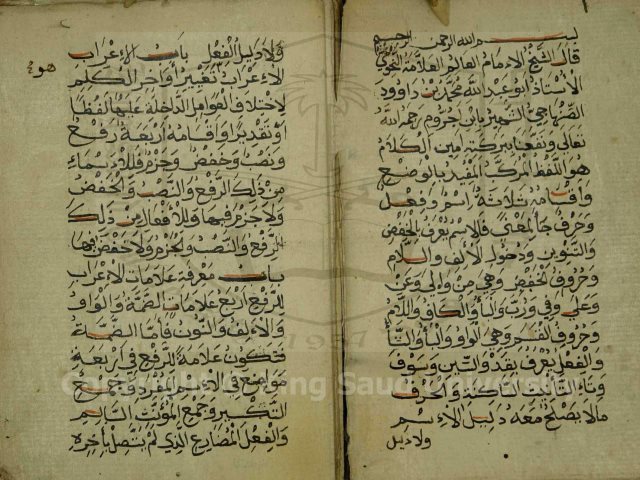 بسم الله الرحمن الرحيم
قال الشيخ الامام العالم العلامة النحوي
الأستاذ ابو عبد الله محمد بن داوود
الصنهاجي الشهير بابن جروم رحمه الله
تعالى ونفعنا ببركته امين الكلام
هو اللفظ المركب المفيد بالوضع
وأقسامه ثلاثة اسم وفعل
وحرف جاء لمعنى فالاسم يعرف بالخفض
والتنوين ودخول الألف واللام
وحروف الخفض وهي من والى وعن
وعلى وفي ورب والباء والكاف واللام
وحروف القسم وهي الواو والباء والتاء
والفعل يعرف بقد والسين وسوف
وتاء التأنيث الساكنة والحرف
مالا يصلح معه دليل الاسم
ولا دليل
ولا دليل الفعل باب الإعراب
الإعراب تغيير أواخر الكلم
لاختلاف العوامل الداخلة عليها لفظا
هو
او تقديرا واقسامه أربعة رفع
ونصب وخفض وجزم فللأسماء
من ذلك الرفع والنصب والخفض
ولا جزم فيها وللأفعال من ذلك
الرفع والنصب والجزم ولا خفض فيها
باب معرفة علامات الاعراب
للرفع أربع علامات الضمة والواو
والألف والنون فأما الضمة
فتكون علامة للرفع في أربعة
مواضع في الاسم المفرد وجمع
التكسير وجمع المؤنث السالم
والفعل المضارع الذي لم يتصل بآخره
1957
Copyright © King Saud University